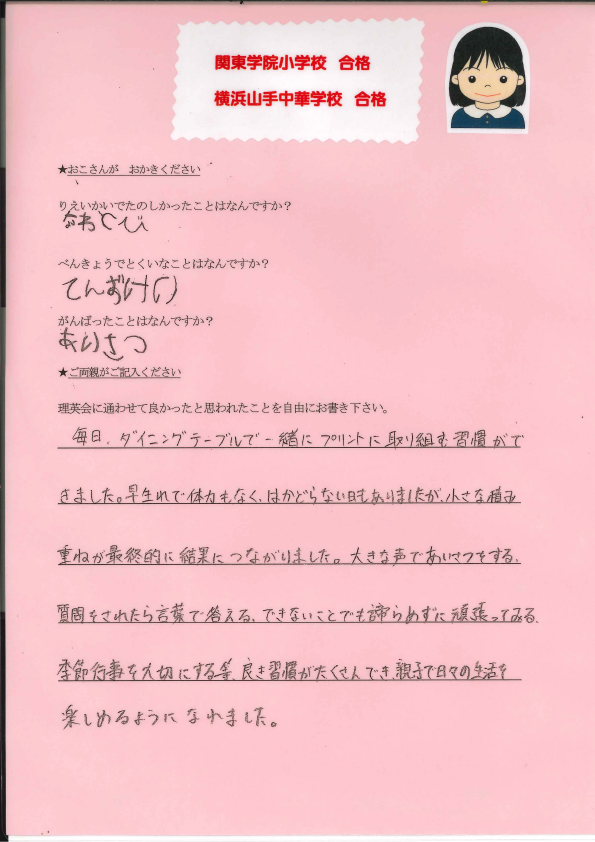 関東学院小学校 合格
横浜山手中華学校 合格
★おこさんが おかきください
りえいかいでたのしかったことはなんですか？
なわとび
べんきょうでとくいなことはなんですか？
てんおけり
がんばったことはなんですか？
あいさつ
★ご両親がご記入ください
理英会に通わせて良かったと思われたことを自由にお書き下さい。
毎日、ダイニングテーブルで一緒にプリントに取り組む習慣がで
きました。早生れで体力もなく、はかどらない日もありましたが、小さな積み
重ねが最終的に結果につながりました。大きな声であいさつをする、
質問をされたら言葉で答える、できないことでも諦らめずに頑張ってみる、
季節行事を大切にする等、良き習慣がたくさんでき、親子で日々の生活を
楽しめるようになれました。